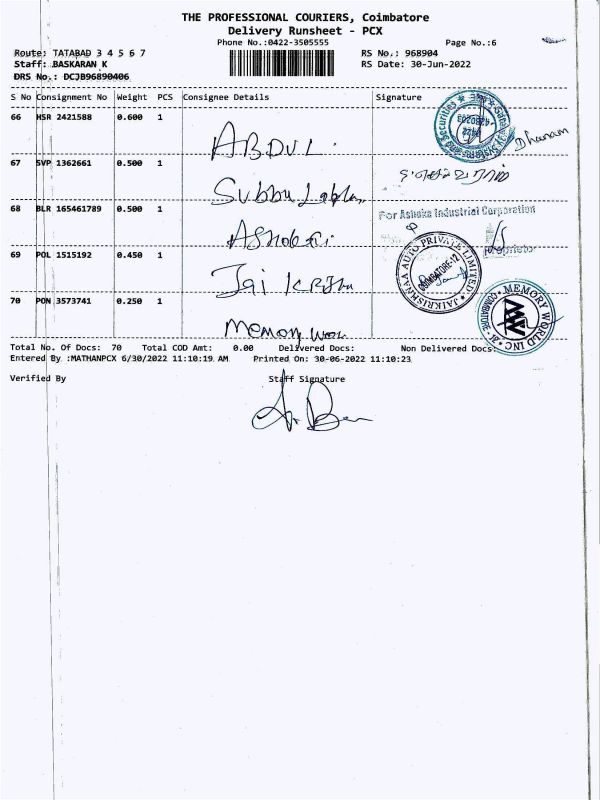 THE PROFESSIONAL COURIERS, Coimbatore
Delivery Runsheet - PCX
Phone No.:0422-3505555 Page No.:6
Route: TATABAD 3 4 5 6 7 RS No.: 968904
Staff: BASKARAN K RS Date: 30-Jun-2022
DRS No.: DCJB96890406
S No Consignment No Weight PCS Consignee Details Signature
66 HSR 2421588 0.600 1 ABDUL Dhanam
67 SVP 1362661 0.500 1 Subbu
68 BLR 165461789 0.500 1 For Ashoka Industrial Corporation
Proprietor
69 POL 1515192 0.450 1 Jai JAIKRISHNAA AUTO PRIVATE LIMITED COIMBATORE-12
70 PON 3573741 0.250 1 Memory MEMORY WORLD INC COIMBATORE - 12
Total No. Of Docs: 70 Total COD Amt: 0.00 Delivered Docs: Non Delivered Docs:
Entered By :MATHANPCX 6/30/2022 11:10:19 AM Printed On: 30-06-2022 11:10:23
Verified By Staff Signature